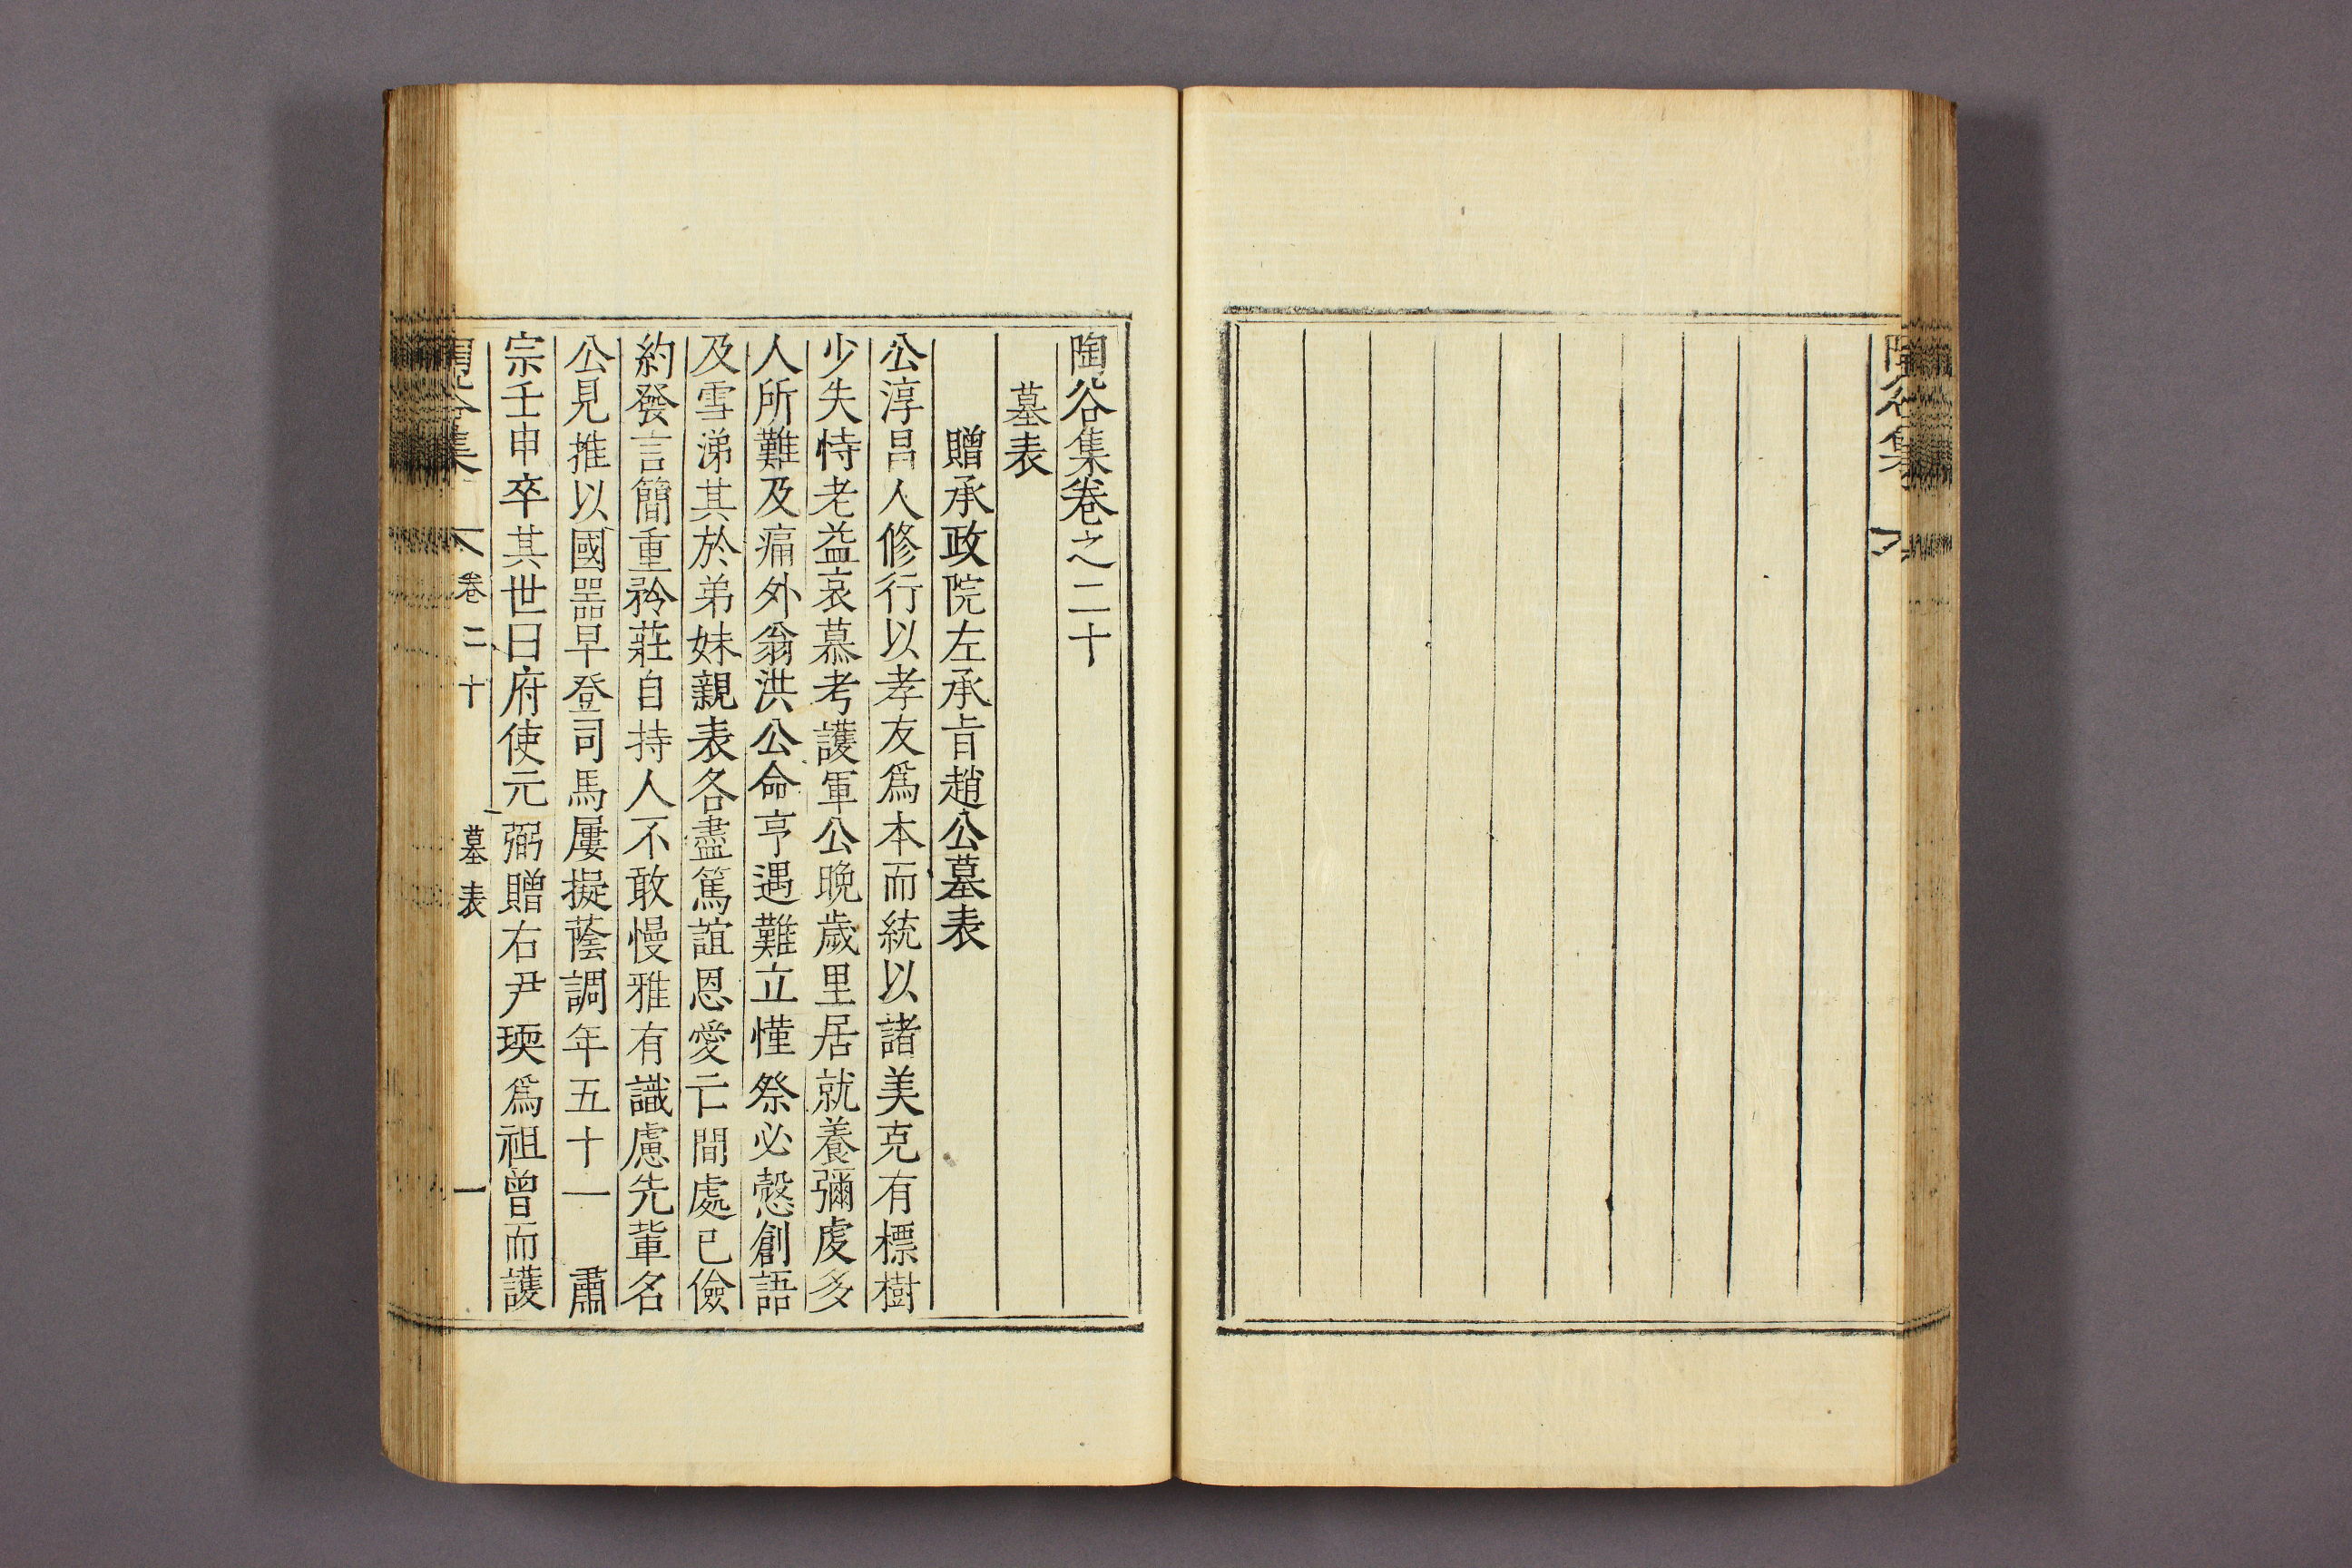 陶谷集
陶谷集卷之二十
墓表
贈承政院左承旨趙公墓表
公淳昌人修行以孝友爲本而統以諸美克有標樹
少失恃老益哀慕考護軍公晩歲里居就養彌虔多
人所難及痛外翁洪公命亨遇難立慬祭必慤創語
及雪涕其於弟妹親表各盡篤誼恩愛亡間處己儉
約發言簡重矜莊自持人不敢慢雅有識慮先輩名
公見推以國噐早登司馬屢擬蔭調年五十一 肅
宗壬申卒其世曰府使元弼贈右尹瑌爲祖曾而護
陶谷集 卷二十 墓表 一